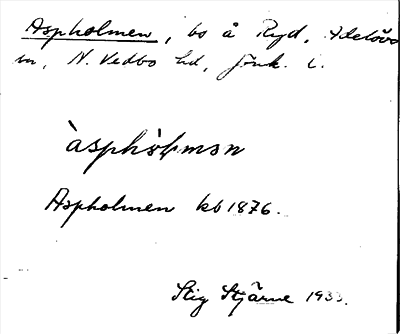 Aspholmen, bo å Ryd, Adelövs
sn, N. Vedbo hd, Jönk. l.
àsphòɫmən
Aspholmen kb 1876.
Stig Stjärne 1933.